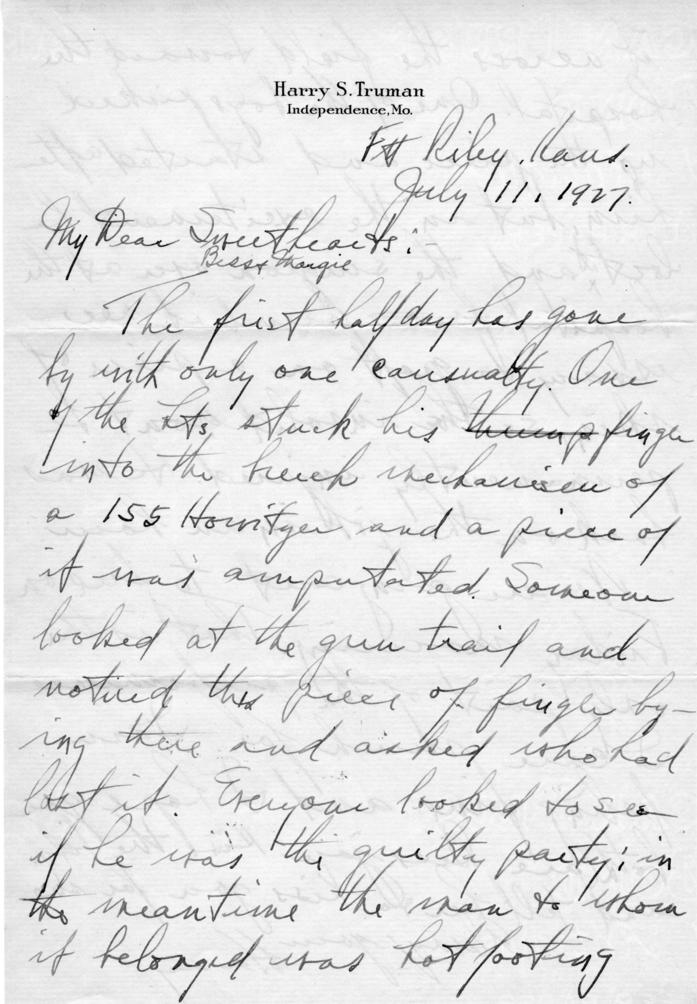 Harry S. Truman
Independence, Mo.
Ft Riley, Kans.
July 11, 1927.
My Dear Sweethearts:-
Bess & Margie
The first half day has gone
by with only one causualty. One
of the Lts stuck his thump finger
into the breech mechanism of
a 155 Howitzer and a piece of
it was amputated. Someone
looked at the gun trail and
noticed this piece of finger ly-
ing there and asked who had
lost it. Everyone looked to see
if he was the guilty party; in
the meantime the man to whom
it belonged was hot footing